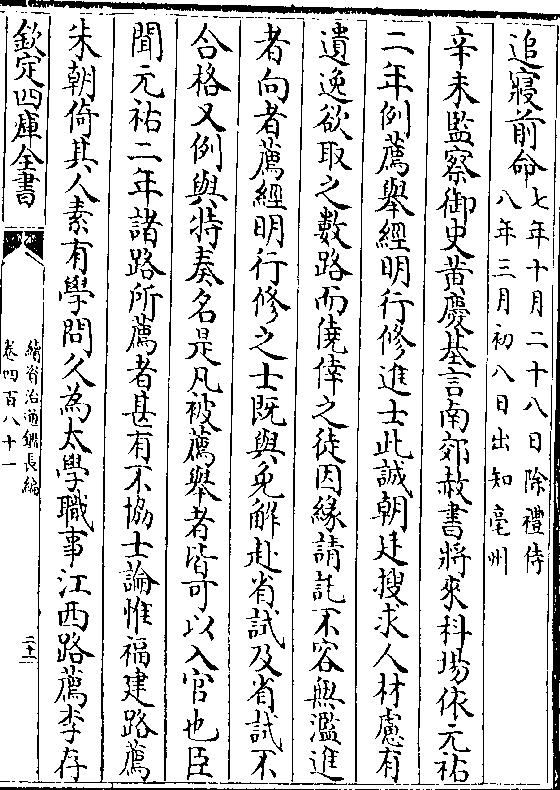 追寢前命七年十月二十八日除禮侍
八年三月初八日出知亳州
辛未監察御史黃慶基言南郊赦書將來科場依元祐
二年例薦舉經明行修進士此誠朝廷搜求人材慮有
遺逸欲取之數路而僥倖之徒因緣請託不容無濫進
者向者薦經明行修之士既與免解赴省試及省試不
合格又例與特奏名是凡被薦舉者皆可以入官也臣
聞元祐二年諸路所薦者甚有不協士論惟福建路薦
朱朝倚其人素有學問久為太學職事江西路薦李存
欽定四庫全書
續資治通鑑長編
卷四百八十一
二十二